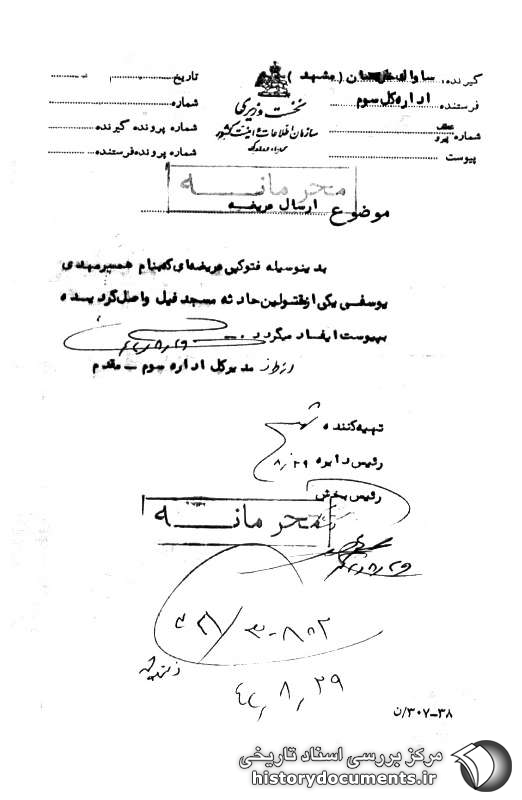 گیرنده: ساواک خراسان (مشهد)
فرستنده اداره کل سوم
شماره پیرو
پیوست
نخست وزیری
سازمان اطلاعات و امنیت کشور
تاریخ
شماره
شماره پرونده گیرنده
شماره پرونده فرستنده
محرمانه
موضوع ارسال عریضه
بدینوسیله فتوکپی عریضه‌ای که بنام همسر مهدی
یوسفی یکی از مقتولین حادثه مسجد فیل واصل گردیده
بپیوست ایفاد میگردد.
۴۶/۸/۲۹
از طرف مدیرکل اداره سوم - مقدم
تهیه کننده
رئیس دایره ۸/۲۹
رئیس بخش
محرمانه
۴۶/۸/۲۹
۳۰۷-۳۸/ن
مرکز بررسی اسناد تاریخی
historydocuments.ir